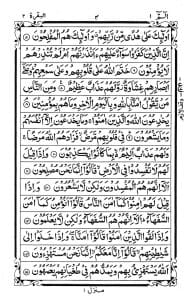 البقرة ٢ ٣ الٓمّٓ ١
اُولٰٓئِكَ عَلٰى هُدًى مِّنْ رَّبِّهِمْ وَاُولٰٓئِكَ هُمُ الْمُفْلِحُوْنَ
اِنَّ الَّذِيْنَ كَفَرُوْا سَوَآءٌ عَلَيْهِمْ ءَاَنْذَرْتَهُمْ اَمْ لَمْ تُنْذِرْهُمْ
لَا يُؤْمِنُوْنَ خَتَمَ اللّٰهُ عَلٰى قُلُوْبِهِمْ وَعَلٰى سَمْعِهِمْ وَعَلٰٓى
اَبْصَارِهِمْ غِشَاوَةٌ وَّلَهُمْ عَذَابٌ عَظِيْمٌ وَمِنَ النَّاسِ
مَنْ يَّقُوْلُ اٰمَنَّا بِاللّٰهِ وَبِالْيَوْمِ الْاٰخِرِ وَمَا هُمْ بِمُؤْمِنِيْنَ
يُخٰدِعُوْنَ اللّٰهَ وَالَّذِيْنَ اٰمَنُوْا وَمَا يَخْدَعُوْنَ اِلَّآ اَنْفُسَهُمْ
وَمَا يَشْعُرُوْنَ فِيْ قُلُوْبِهِمْ مَّرَضٌ فَزَادَهُمُ اللّٰهُ مَرَضًا
وَلَهُمْ عَذَابٌ اَلِيْمٌ بِمَا كَانُوْا يَكْذِبُوْنَ وَاِذَا قِيْلَ
لَهُمْ لَا تُفْسِدُوْا فِي الْاَرْضِ قَالُوْٓا اِنَّمَا نَحْنُ مُصْلِحُوْنَ
اَلَآ اِنَّهُمْ هُمُ الْمُفْسِدُوْنَ وَلٰكِنْ لَّا يَشْعُرُوْنَ وَاِذَا
قِيْلَ لَهُمْ اٰمِنُوْا كَمَآ اٰمَنَ النَّاسُ قَالُوْٓا اَنُؤْمِنُ كَمَآ اٰمَنَ
السُّفَهَآءُ اَلَآ اِنَّهُمْ هُمُ السُّفَهَآءُ وَلٰكِنْ لَّا يَعْلَمُوْنَ
وَاِذَا لَقُوا الَّذِيْنَ اٰمَنُوْا قَالُوْٓا اٰمَنَّا وَاِذَا خَلَوْا اِلٰى
شَيٰطِيْنِهِمْ قَالُوْٓا اِنَّا مَعَكُمْ اِنَّمَا نَحْنُ مُسْتَهْزِءُوْنَ
اَللّٰهُ يَسْتَهْزِئُ بِهِمْ وَيَمُدُّهُمْ فِيْ طُغْيَانِهِمْ يَعْمَهُوْنَ
منزل ١